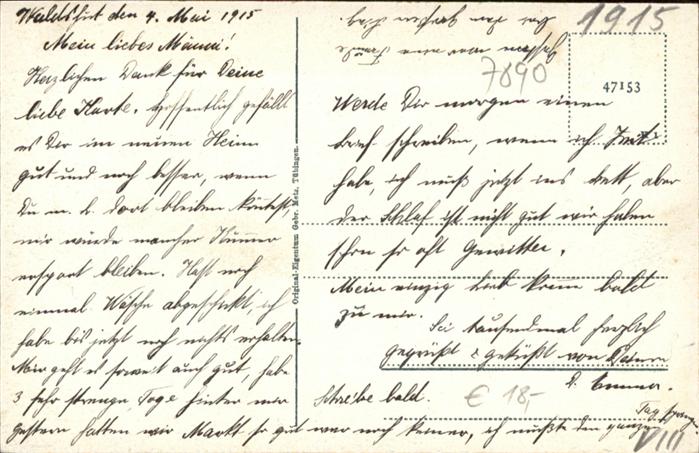 Waldshut den 4. Mai 1915
Mein liebes Männi!
Herzlichen Dank für Deine
liebe Karte. Hoffentlich gefällt
es Dir im neuen Heim
gut und noch besser, wenn
Du m. l. dort bleiben könntest,
mir würde mancher Kummer
erspart bleiben. Hast noch
einmal Wäsche abgeschickt, ich
habe bis jetzt noch nichts erhalten.
Mir geht es soweit auch gut, habe
3 sehr strenge Tage hinter mir
gestern hatten wir Markt so gut war noch keiner, ich mußte den ganzen
Tag
1915
7890
47153
Werde Dir morgen einen
Brief schreiben, wenn ich Zeit
habe, ich muß jetzt ins Bett, aber
der Schlaf ist nicht gut wir haben
schon so oft Gewitter.
Mein einzig Lieb komm bald
zu mir.
Sei tausendmal herzlich
gegrüßt & geküßt von Deiner
D. Emma.
Schreibe bald.
€ 18,-
VIII
Original-Eigentum Gebr. Metz, Tübingen.